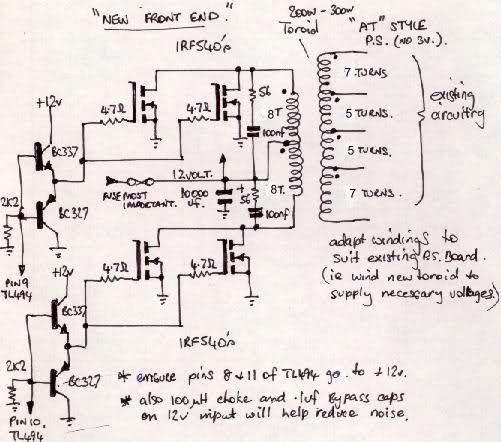 "NEW FRONT END."
200W - 300W
Toroid
"AT" STYLE
P.S. (NO 3v.)
IRF540's
+12v
4.7Ω
4.7Ω
56
8T
100nf
7 TURNS
5 TURNS.
5 TURNS.
7 TURNS.
existing
circuitry
BC337
BC327
2K2
PIN9
TL494
12VOLT.
FUSE MOST
IMPORTANT.
10000
uf.
+
56
100nf
8T.
+12v
BC337
BC327
2K2
PIN10,
TL494
4.7Ω
4.7Ω
IRF540's
adapt windings to
suit existing P.S. Board.
(ie wind new toroid to
supply necessary voltages)
* ensure pins 8 & 11 of TL494 go to +12v.
* also 100μH choke and .1uf Bypass caps
on 12v input will help reduce noise.